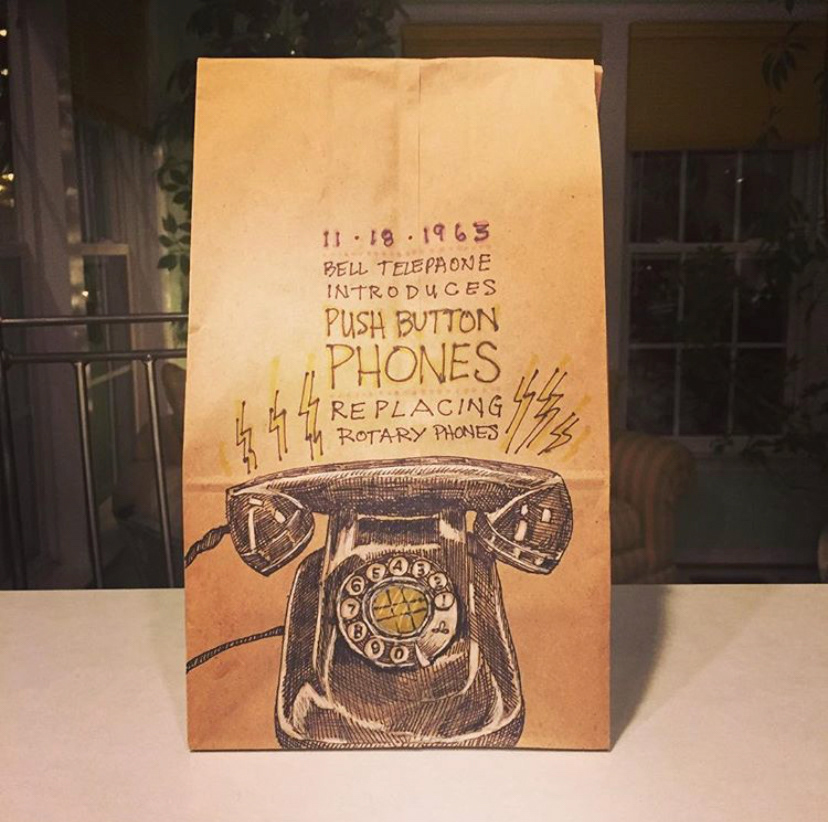 11·18·1963
BELL TELEPHONE
INTRODUCES
PUSH BUTTON
PHONES
REPLACING
ROTARY PHONES
5 4 3 2 1
6
7
8
9 0